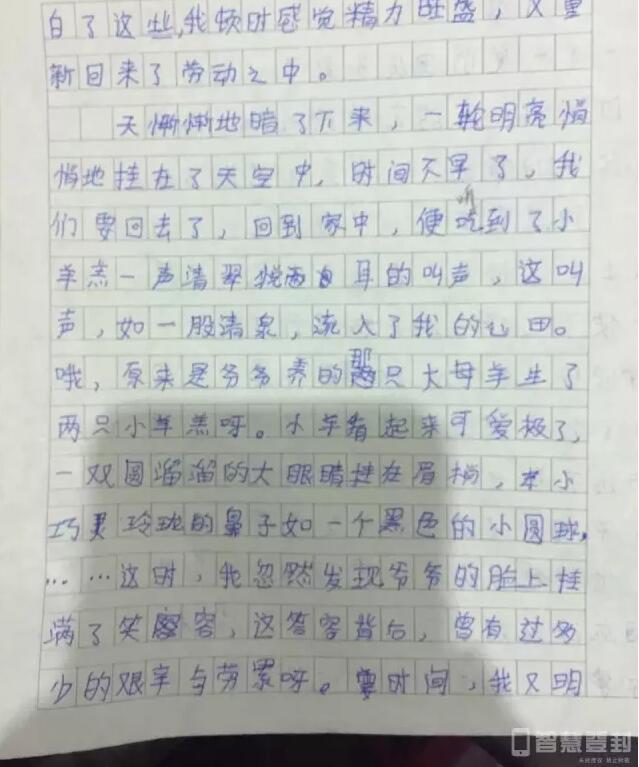 白了这些,我顿时感觉精力旺盛,又重
新回来了劳动之中。
天慚慚地暗了下来,一轮明亮悄
悄地挂在了天空中,时间不早了,我
们要回去了,回到家中,便听到了小
羊羔一声清翠悦耳的叫声,这叫
声,如一股清泉,流入了我的心田。
哦,原来是爷爷养的那只大母羊生了
两只小羊羔呀。小羊看起来可爱极了,
一双圆溜溜的大眼睛挂在眉梢,本小
巧灵玲珑的鼻子如一个黑色的小圆球,
……这时,我忽然发现爷爷的脸上挂
满了笑容,这笑容背后,曾有过多
少的艰辛与劳累呀。霎时间,我又明
智慧登封
未经授权 禁止转载